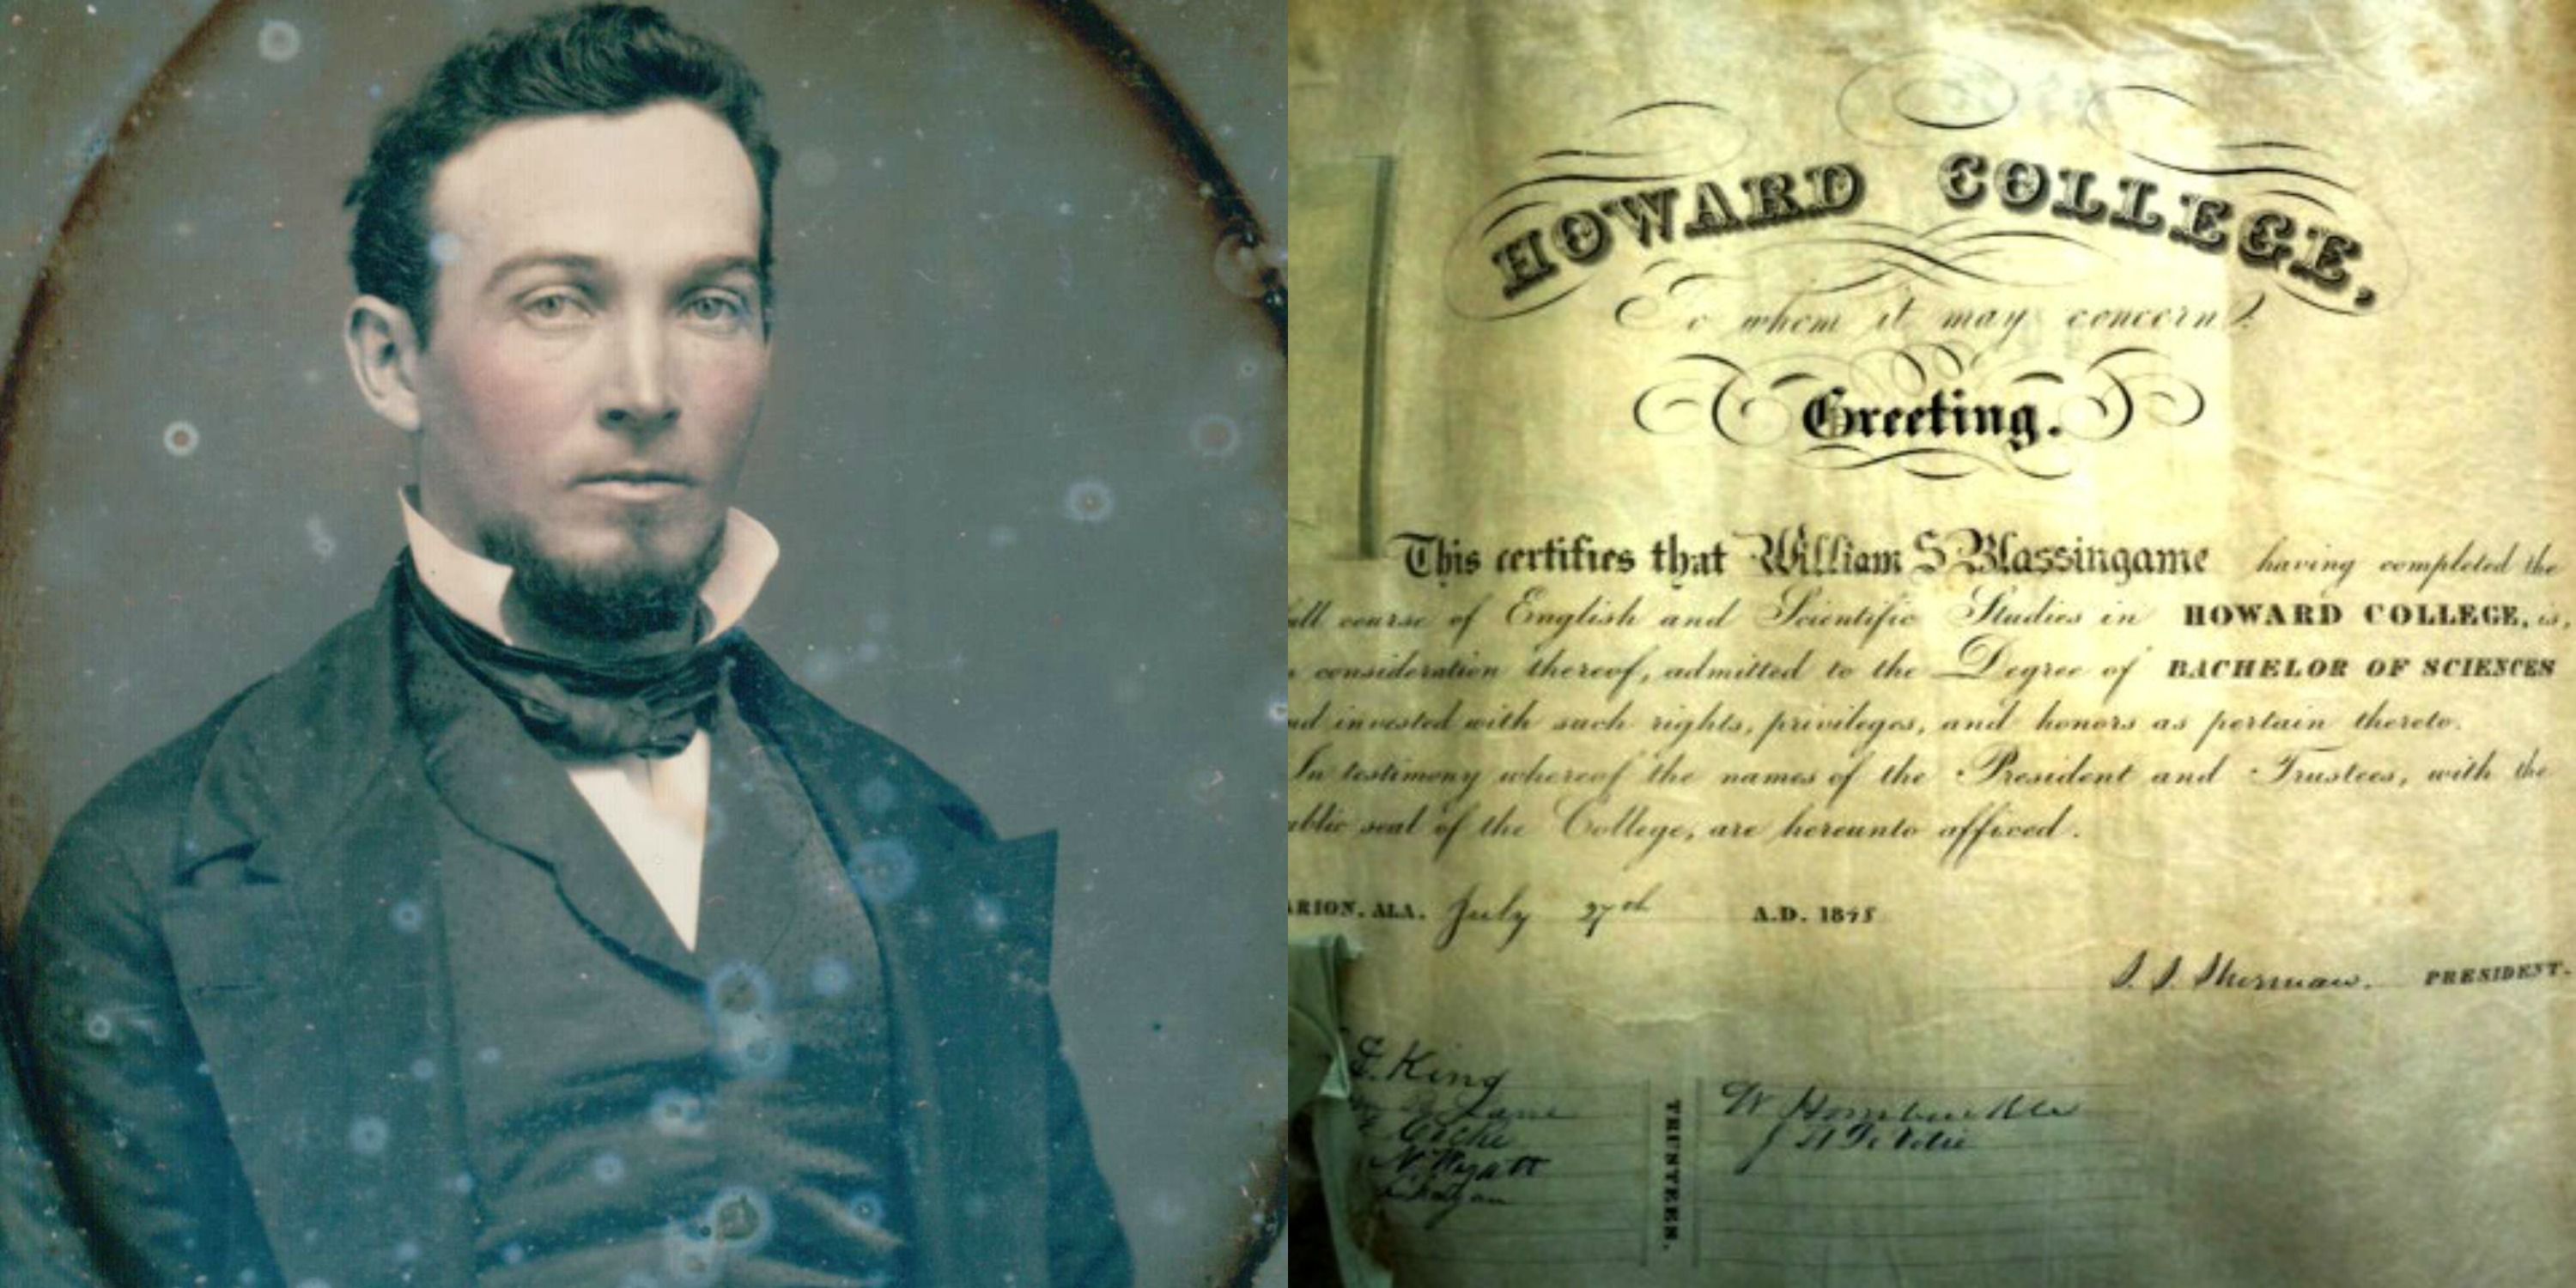 HOWARD COLLEGE,
To whom it may concern!
Greeting.
This certifies that William S Blassingame having completed the
ull course of English and Scientific Studies in HOWARD COLLEGE, is,
n consideration thereof, admitted to the Degree of BACHELOR OF SCIENCES
nd invested with such rights, privileges, and honors as pertain thereto.
In testimony whereof the names of the President and Trustees, with the
ublic seal of the College, are hereunto affixed.
ARION, ALA. July 27th A.D. 1848
S. S. Sherman. PRESIDENT.
E. King
Cocke
N. Wyatt
TRUSTEES.
W Hornbuckle
J H De Votie